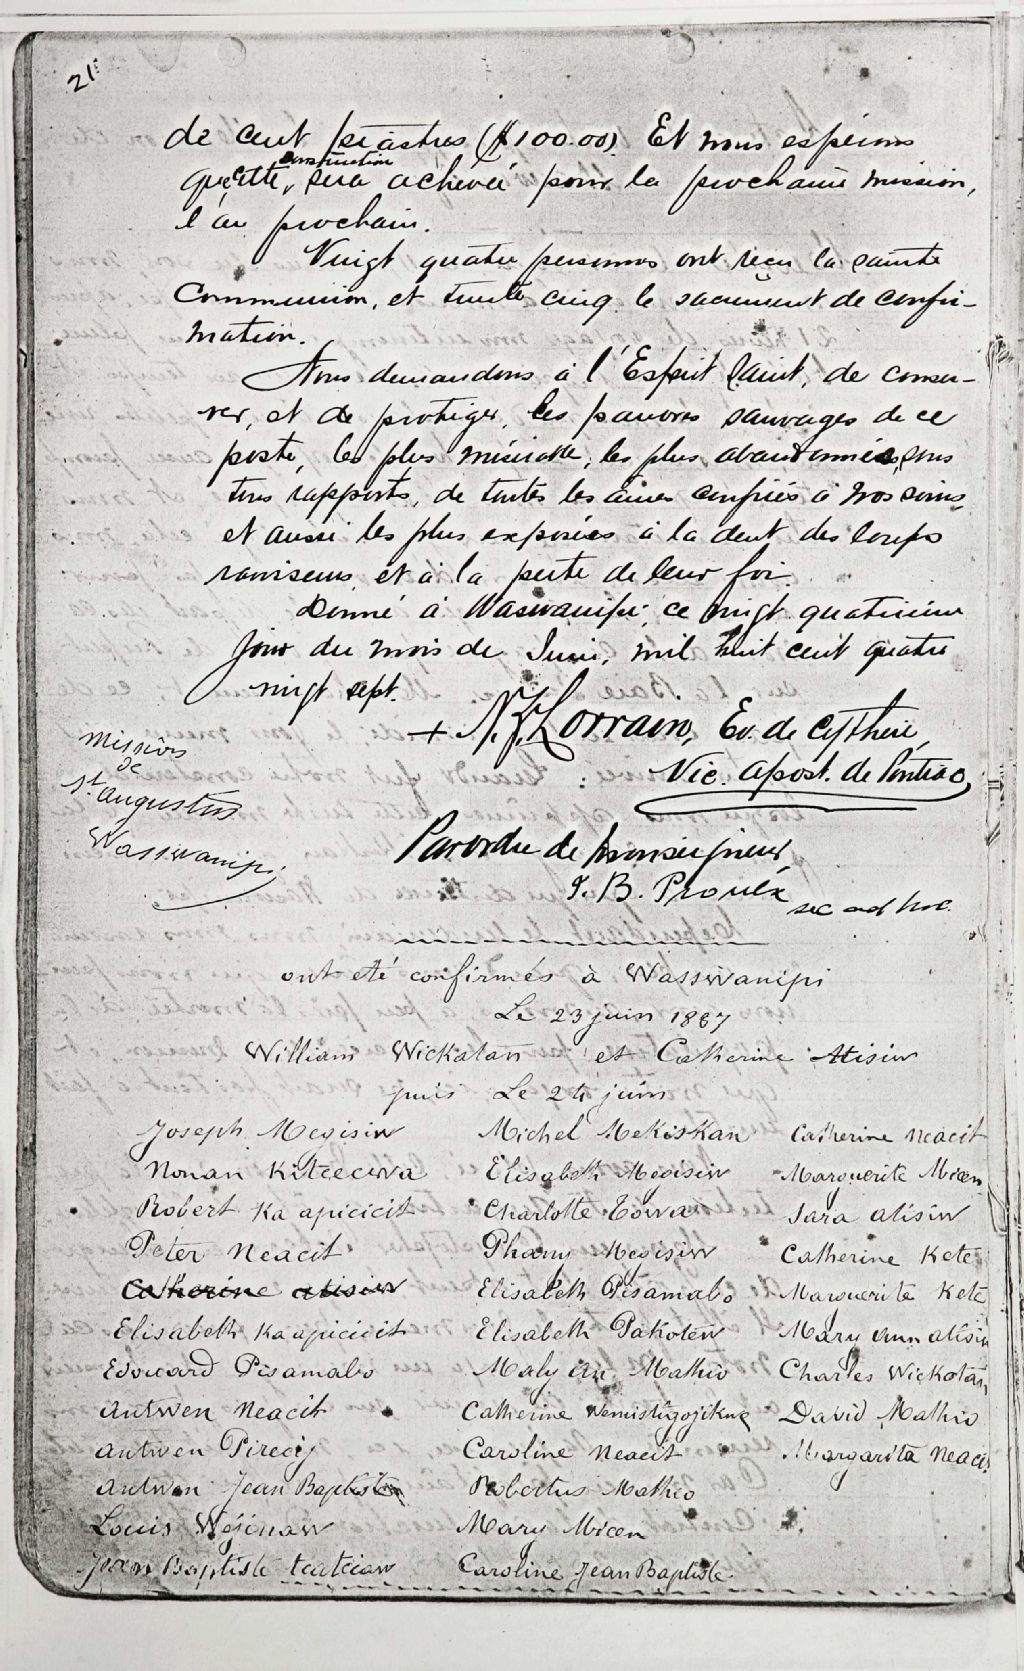 21
de cent piastres ($100.00). Et nous espérons
que cette construction sera achevée pour la prochaine mission,
l'an prochain.
Vingt quatre personnes ont reçu la sainte
Communion, et trente cinq le sacrement de confir-
mation.
Nous demandons à l'Esprit Saint, de conser-
ver, et de protéger, les pauvres sauvages de ce
poste, les plus misérable, les plus abandonnées, sous
tous rapports, de toutes les âmes confiées à nos soins,
et aussi les plus exposées à la dent des loups
ravisseurs et à la perte de leur foi.
Donné à Waswanipi, ce vingt quatrième
jour du mois de Juin, mil huit cent quatre
vingt sept.
+ N. Z. Lorrain, Ev. de Cythère,
Vic. apost. de Pontiac
Mission
de
St Augustin
Wasswanipi
Par ordre de Monseigneur,
J. B. Proulx
sec ad hoc.
ont été confirmés à Wasswanipi
Le 23 juin 1887
William Wickatan et Catherine Atisiw
puis Le 24 juin
Joseph Megisiw Michel Mekiskan Catherine Neacit
Nonan Kitcecwa Elisabeth Megisiw Marguerite Micen
Robert Ka apicicit Charlotte Towa Sara Atisiw
Peter Neacit Phany Megisiw Catherine Kete
Catherine atisiw Elisabeth Pisamabo Marguerite Kete
Elisabeth Kaapicicit Elisabeth Pakotew Mary Ann atisiw
Edouard Pisamabo Maly An Mathio Charles Wickotan
Antwen Neacit Catherine Wemistigojikwe David Mathio
Antwen Pirecij Caroline Neacit Margarita Neacit
Antwen Jean Baptiste Robertus Mathio
Louis Wejinaw Mary Micen
Jean Baptiste tcatciaw Caroline Jean Baptiste